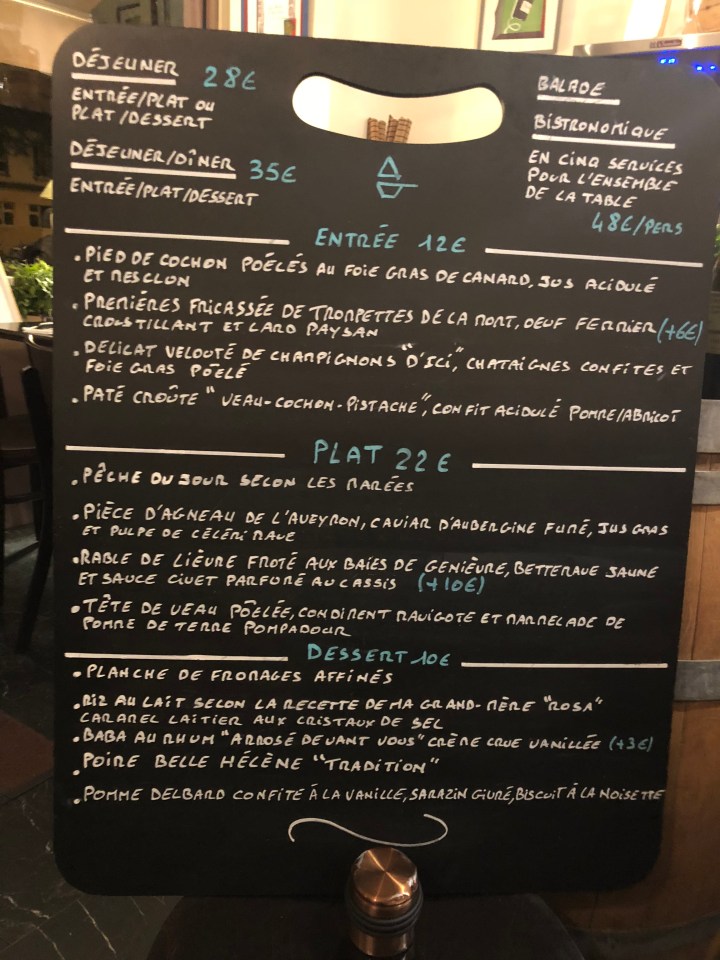 DÉJEUNER 28€
ENTRÉE/PLAT OU
PLAT/DESSERT
DÉJEUNER/DÎNER 35€
ENTRÉE/PLAT/DESSERT
BALADE
BISTRONOMIQUE
EN CINQ SERVICES
POUR L'ENSEMBLE
DE LA TABLE
48€/PERS
ENTRÉE 12€
. PIED DE COCHON POÉLÉS AU FOIE GRAS DE CANARD, JUS ACIDULÉ
ET MESCLUN
. PREMIÈRES FRICASSÉE DE TROMPETTES DE LA MORT, OEUF FERMIER (+6€)
CROUSTILLANT ET LARD PAYSAN
. DÉLICAT VELOUTÉ DE CHAMPIGNONS "D'ICI", CHATAIGNES CONFITES ET
FOIE GRAS POÊLÉ
. PATÉ CROÛTE "VEAU-COCHON-PISTACHE", CONFIT ACIDULÉ POMME/ABRICOT
PLAT 22€
. PÊCHE DU JOUR SELON LES MARÉES
. PIÈCE D'AGNEAU DE L'AVEYRON, CAVIAR D'AUBERGINE FUMÉ, JUS GRAS
ET PULPE DE CÉLERI RAVE
. RABLE DE LIÈVRE FROTÉ AUX BAIES DE GENIÈVRE, BETTERAVE JAUNE
ET SAUCE CIVET PARFUMÉ AU CASSIS (+10€)
. TÊTE DE VEAU POÊLÉE, CONDIMENT RAVIGOTE ET MARMELADE DE
POMME DE TERRE POMPADOUR
DESSERT 10€
. PLANCHE DE FROMAGES AFFINÉS
. RIZ AU LAIT SELON LA RECETTE DE MA GRAND-MÈRE "ROSA"
CARAMEL LAITIER AUX CRISTAUX DE SEL
. BABA AU RHUM "ARROSÉ DEVANT VOUS" CRÈME CRUE VANILLÉE (+3€)
. POIRE BELLE HÉLÈNE "TRADITION"
. POMME DELBARD CONFITE À LA VANILLE, SARAZIN GIVRÉ, BISCUIT À LA NOISETTE